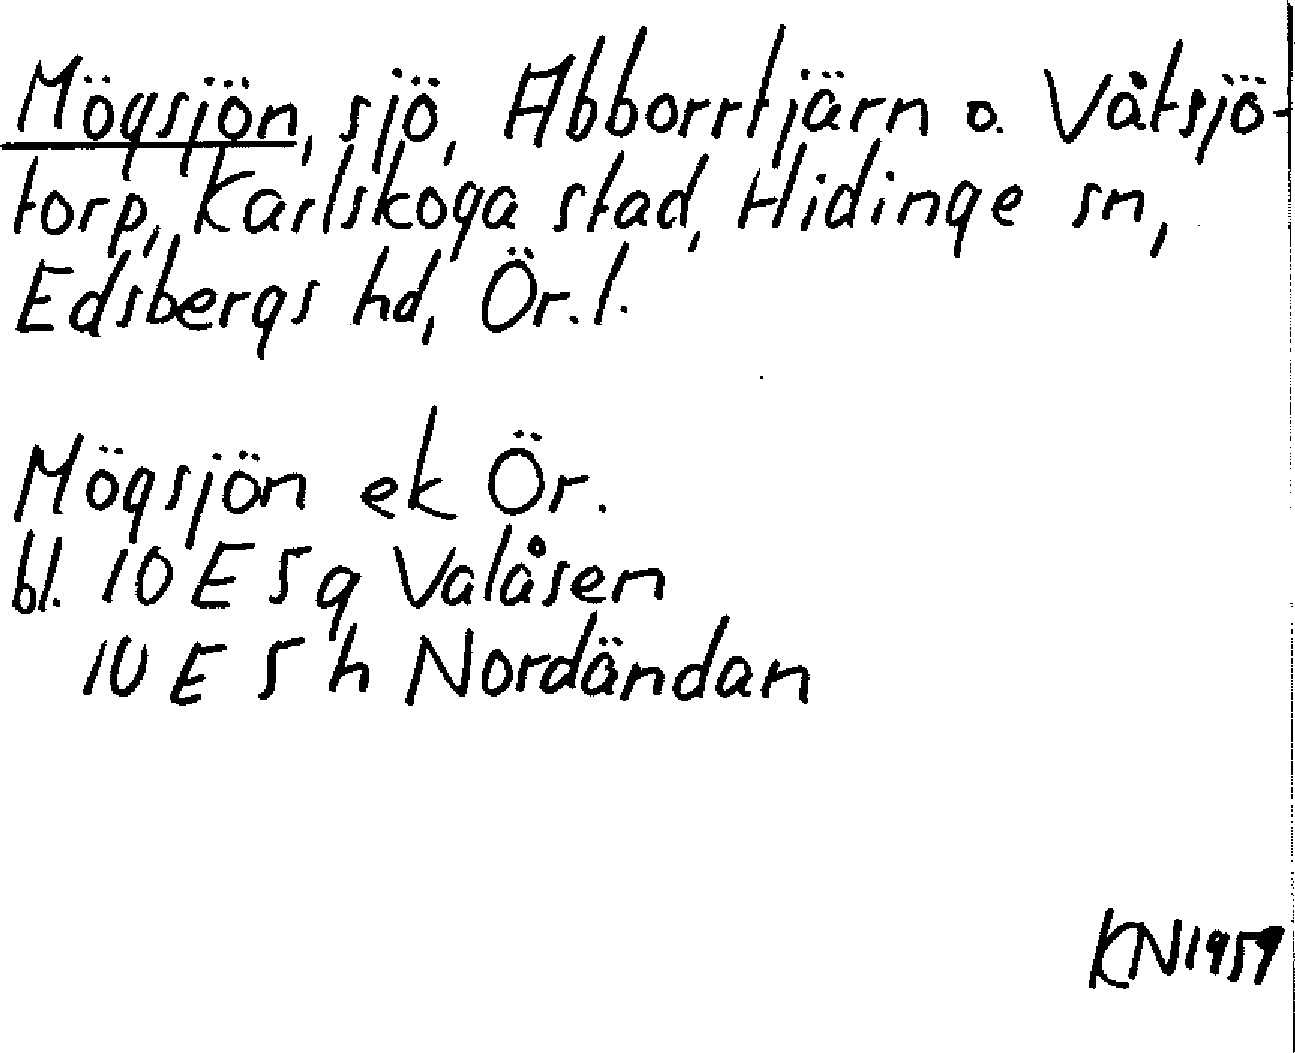 Mögsjön, sjö, Abborrtjärn o. Våtsjö-
torp, Karlskoga stad, Hidinge sn,
Edsbergs hd, Ör. l.
Mögsjön ek Ör.
bl. 10 E 5 g Valåsen
10 E 5 h Nordändan
KN 1959